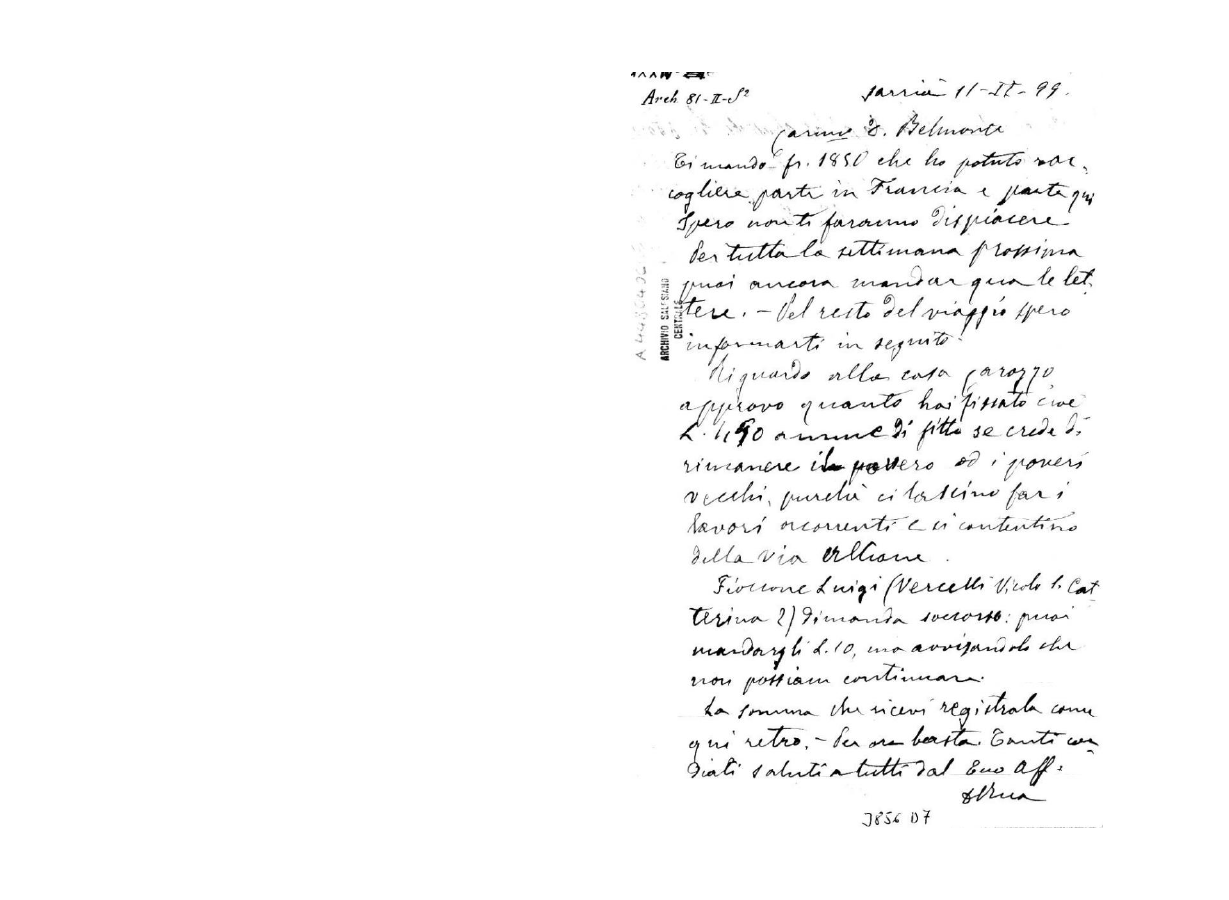 Arch 81-II-S²
Sarrià 11-II-99.
Carmo D. Belmonte
Ti mando fr. 1850 che ho potuto rac-
cogliere parte in Francia e parte qui
Spero non ti faranno dispiacere
Per tutta la settimana prossima
puoi ancora mandar qua le let-
tere. - Pel resto del viaggio spero
informarti in seguito.
Riguardo alla casa
approvo quanto hai fissato cioè
L. annue di fitto se crede di
rimanere ed i poveri
vecchi, purchè ci lascino far i
lavori occorrenti e si contentino
della via
Luigi (Vercelli Vicolo S. Cat-
terina 2) dimanda soccorso: puoi
mandargli L. 10, ma avvisandolo che
non possiam continuare.
La somma che ricevi registrala come
qui retro. - Per ora basta. Tanti cor-
diali saluti a tutti dal tuo Aff.
D Rua
3856 D7
ARCHIVIO SALESIANO
CENTRALE